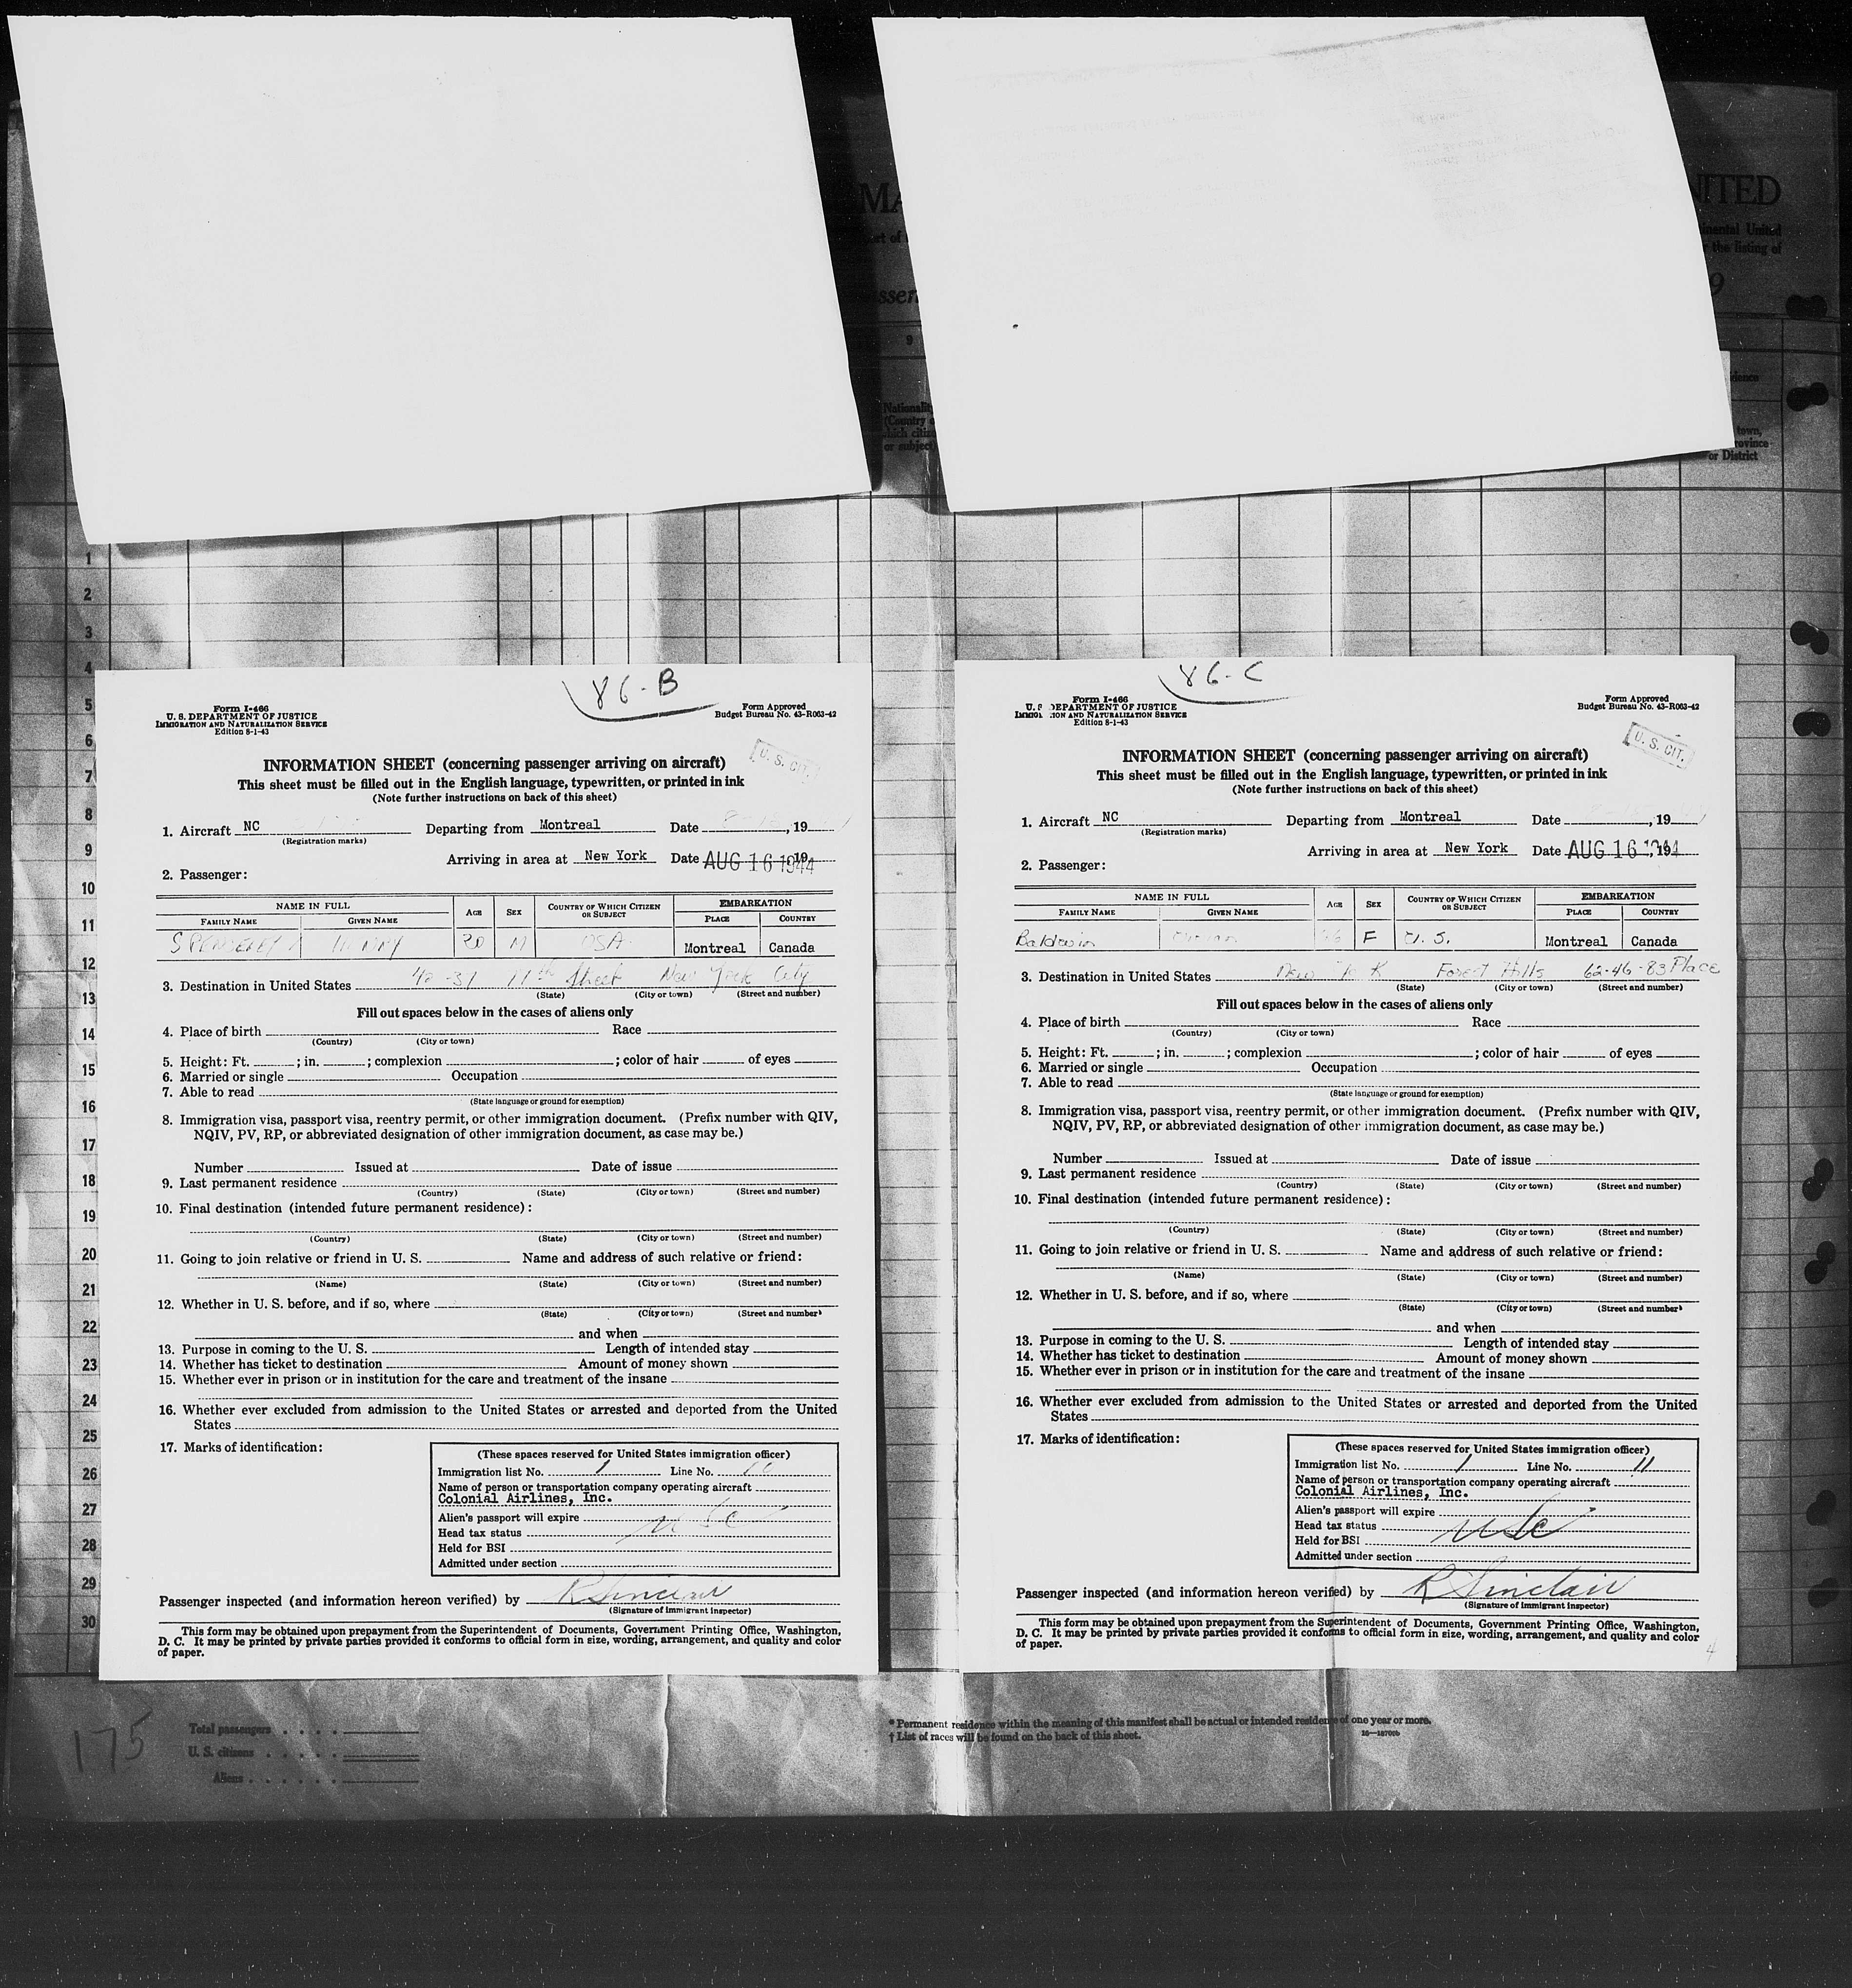 MA
NITED
art of
inental United
r the listing of
ssen
9
9
Nationality
(Country o
which citi
or subjec
idence
town,
rovince
or District
1
2
3
4
5
6
7
8
9
10
11
12
13
14
15
16
17
18
19
20
21
22
23
24
25
26
27
28
29
30
86-B
Form I-466
U. S. DEPARTMENT OF JUSTICE
IMMIGRATION AND NATURALIZATION SERVICE
Edition 8-1-43
Form Approved
Budget Bureau No. 43-R063-42
U. S. CIT.
INFORMATION SHEET (concerning passenger arriving on aircraft)
This sheet must be filled out in the English language, typewritten, or printed in ink
(Note further instructions on back of this sheet)
1. Aircraft NC Departing from Montreal Date , 19
(Registration marks)
Arriving in area at New York Date AUG 16 1944 , 19
2. Passenger:
NAME IN FULL AGE SEX COUNTRY OF WHICH CITIZEN OR SUBJECT EMBARKATION
FAMILY NAME GIVEN NAME PLACE COUNTRY
M USA Montreal Canada
3. Destination in United States 42-31 11th Street New York City
(State) (City or town) (Street and number)
Fill out spaces below in the cases of aliens only
4. Place of birth Race
(Country) (City or town)
5. Height: Ft. ; in. ; complexion ; color of hair of eyes
6. Married or single Occupation
7. Able to read
(State language or ground for exemption)
8. Immigration visa, passport visa, reentry permit, or other immigration document. (Prefix number with QIV,
NQIV, PV, RP, or abbreviated designation of other immigration document, as case may be.)
Number Issued at Date of issue
9. Last permanent residence
(Country) (State) (City or town) (Street and number)
10. Final destination (intended future permanent residence):
(Country) (State) (City or town) (Street and number)
11. Going to join relative or friend in U. S. Name and address of such relative or friend:
(Name) (State) (City or town) (Street and number)
12. Whether in U. S. before, and if so, where
(State) (City or town) (Street and number)
and when
13. Purpose in coming to the U. S. Length of intended stay
14. Whether has ticket to destination Amount of money shown
15. Whether ever in prison or in institution for the care and treatment of the insane
16. Whether ever excluded from admission to the United States or arrested and deported from the United
States
17. Marks of identification:
(These spaces reserved for United States immigration officer)
Immigration list No. 1 Line No. 10
Name of person or transportation company operating aircraft
Colonial Airlines, Inc.
Alien's passport will expire
Head tax status USC
Held for BSI
Admitted under section
Passenger inspected (and information hereon verified) by R Sinclair
(Signature of immigrant inspector)
This form may be obtained upon prepayment from the Superintendent of Documents, Government Printing Office, Washington,
D. C. It may be printed by private parties provided it conforms to official form in size, wording, arrangement, and quality and color
of paper.
86-C
Form I-466
U. S. DEPARTMENT OF JUSTICE
IMMIGRATION AND NATURALIZATION SERVICE
Edition 8-1-43
Form Approved
Budget Bureau No. 43-R063-42
U. S. CIT.
INFORMATION SHEET (concerning passenger arriving on aircraft)
This sheet must be filled out in the English language, typewritten, or printed in ink
(Note further instructions on back of this sheet)
1. Aircraft NC Departing from Montreal Date , 19
(Registration marks)
Arriving in area at New York Date AUG 16 1944 , 19
2. Passenger:
NAME IN FULL AGE SEX COUNTRY OF WHICH CITIZEN OR SUBJECT EMBARKATION
FAMILY NAME GIVEN NAME PLACE COUNTRY
Baldwin F U. S. Montreal Canada
3. Destination in United States New York Forest Hills 62-46-83 Place
(State) (City or town) (Street and number)
Fill out spaces below in the cases of aliens only
4. Place of birth Race
(Country) (City or town)
5. Height: Ft. ; in. ; complexion ; color of hair of eyes
6. Married or single Occupation
7. Able to read
(State language or ground for exemption)
8. Immigration visa, passport visa, reentry permit, or other immigration document. (Prefix number with QIV,
NQIV, PV, RP, or abbreviated designation of other immigration document, as case may be.)
Number Issued at Date of issue
9. Last permanent residence
(Country) (State) (City or town) (Street and number)
10. Final destination (intended future permanent residence):
(Country) (State) (City or town) (Street and number)
11. Going to join relative or friend in U. S. Name and address of such relative or friend:
(Name) (State) (City or town) (Street and number)
12. Whether in U. S. before, and if so, where
(State) (City or town) (Street and number)
and when
13. Purpose in coming to the U. S. Length of intended stay
14. Whether has ticket to destination Amount of money shown
15. Whether ever in prison or in institution for the care and treatment of the insane
16. Whether ever excluded from admission to the United States or arrested and deported from the United
States
17. Marks of identification:
(These spaces reserved for United States immigration officer)
Immigration list No. 1 Line No. 11
Name of person or transportation company operating aircraft
Colonial Airlines, Inc.
Alien's passport will expire
Head tax status USC
Held for BSI
Admitted under section
Passenger inspected (and information hereon verified) by R Sinclair
(Signature of immigrant inspector)
This form may be obtained upon prepayment from the Superintendent of Documents, Government Printing Office, Washington,
D. C. It may be printed by private parties provided it conforms to official form in size, wording, arrangement, and quality and color
of paper.
4
175
Total passengers
U. S. citizens
Aliens
* Permanent residence within the meaning of this manifest shall be actual or intended residence of one year or more.
† List of races will be found on the back of this sheet.